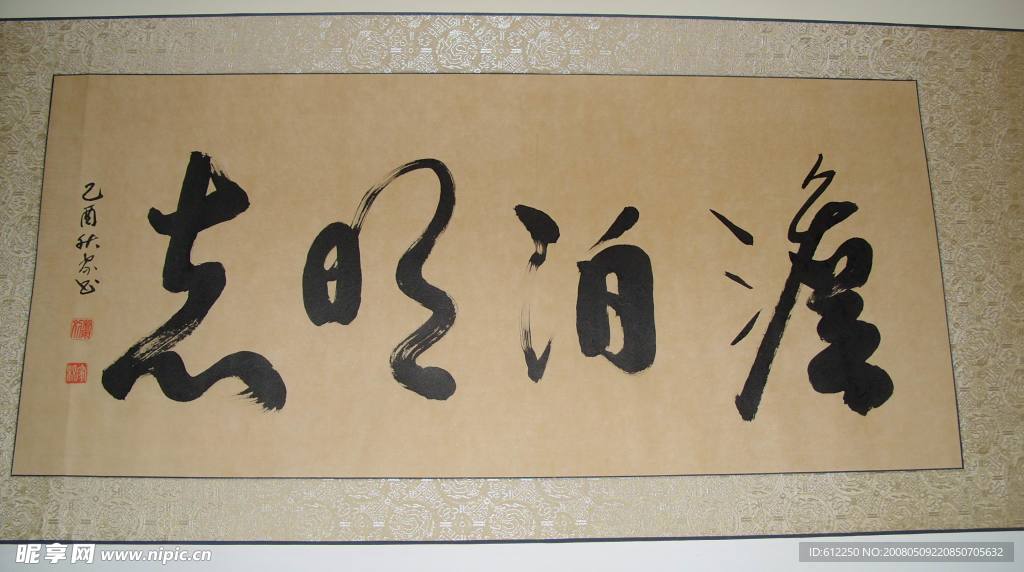 澹泊明志
乙酉秋家书
昵享网 www.nipic.cn
ID:612250 NO:20080509220850705632